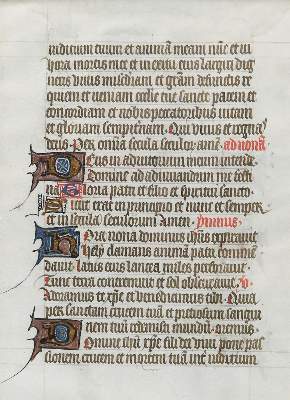 iudicium tuum et animam meam nunc et in
hora mortis mee et in exitu eius largiri dig
neris vivis misericordiam et gratiam defunctis re
quiem et veniam ecclesie tue sancte pacem et
concordiam et nobis peccatoribus vitam
et gloriam sempiternam. Qui vivis et regnas
deus. Per omnia secula seculorum. amen. ad nonam
Deus in adiutorium meum intende.
Domine ad adiuvandum me festi
na. Gloria patri et filio et spiritui sancto.
Sicut erat in principio et nunc et semper
et in secula seculorum Amen. ymnus
Hora nona dominus ihesus expiravit
hely clamans animam patri commen
davit. latus eius lancea miles perforavit.
Tunc terra contremuit et sol obscuravit. v.
Adoramus te christe et benedicimus tibi. Quia
per sanctam crucem tuam et pretiosum sangui
nem tuum redemisti mundum. oremus.
Domine ihesu christe fili dei vivi pone pas
sionem crucem et mortem tuam inter iudicium